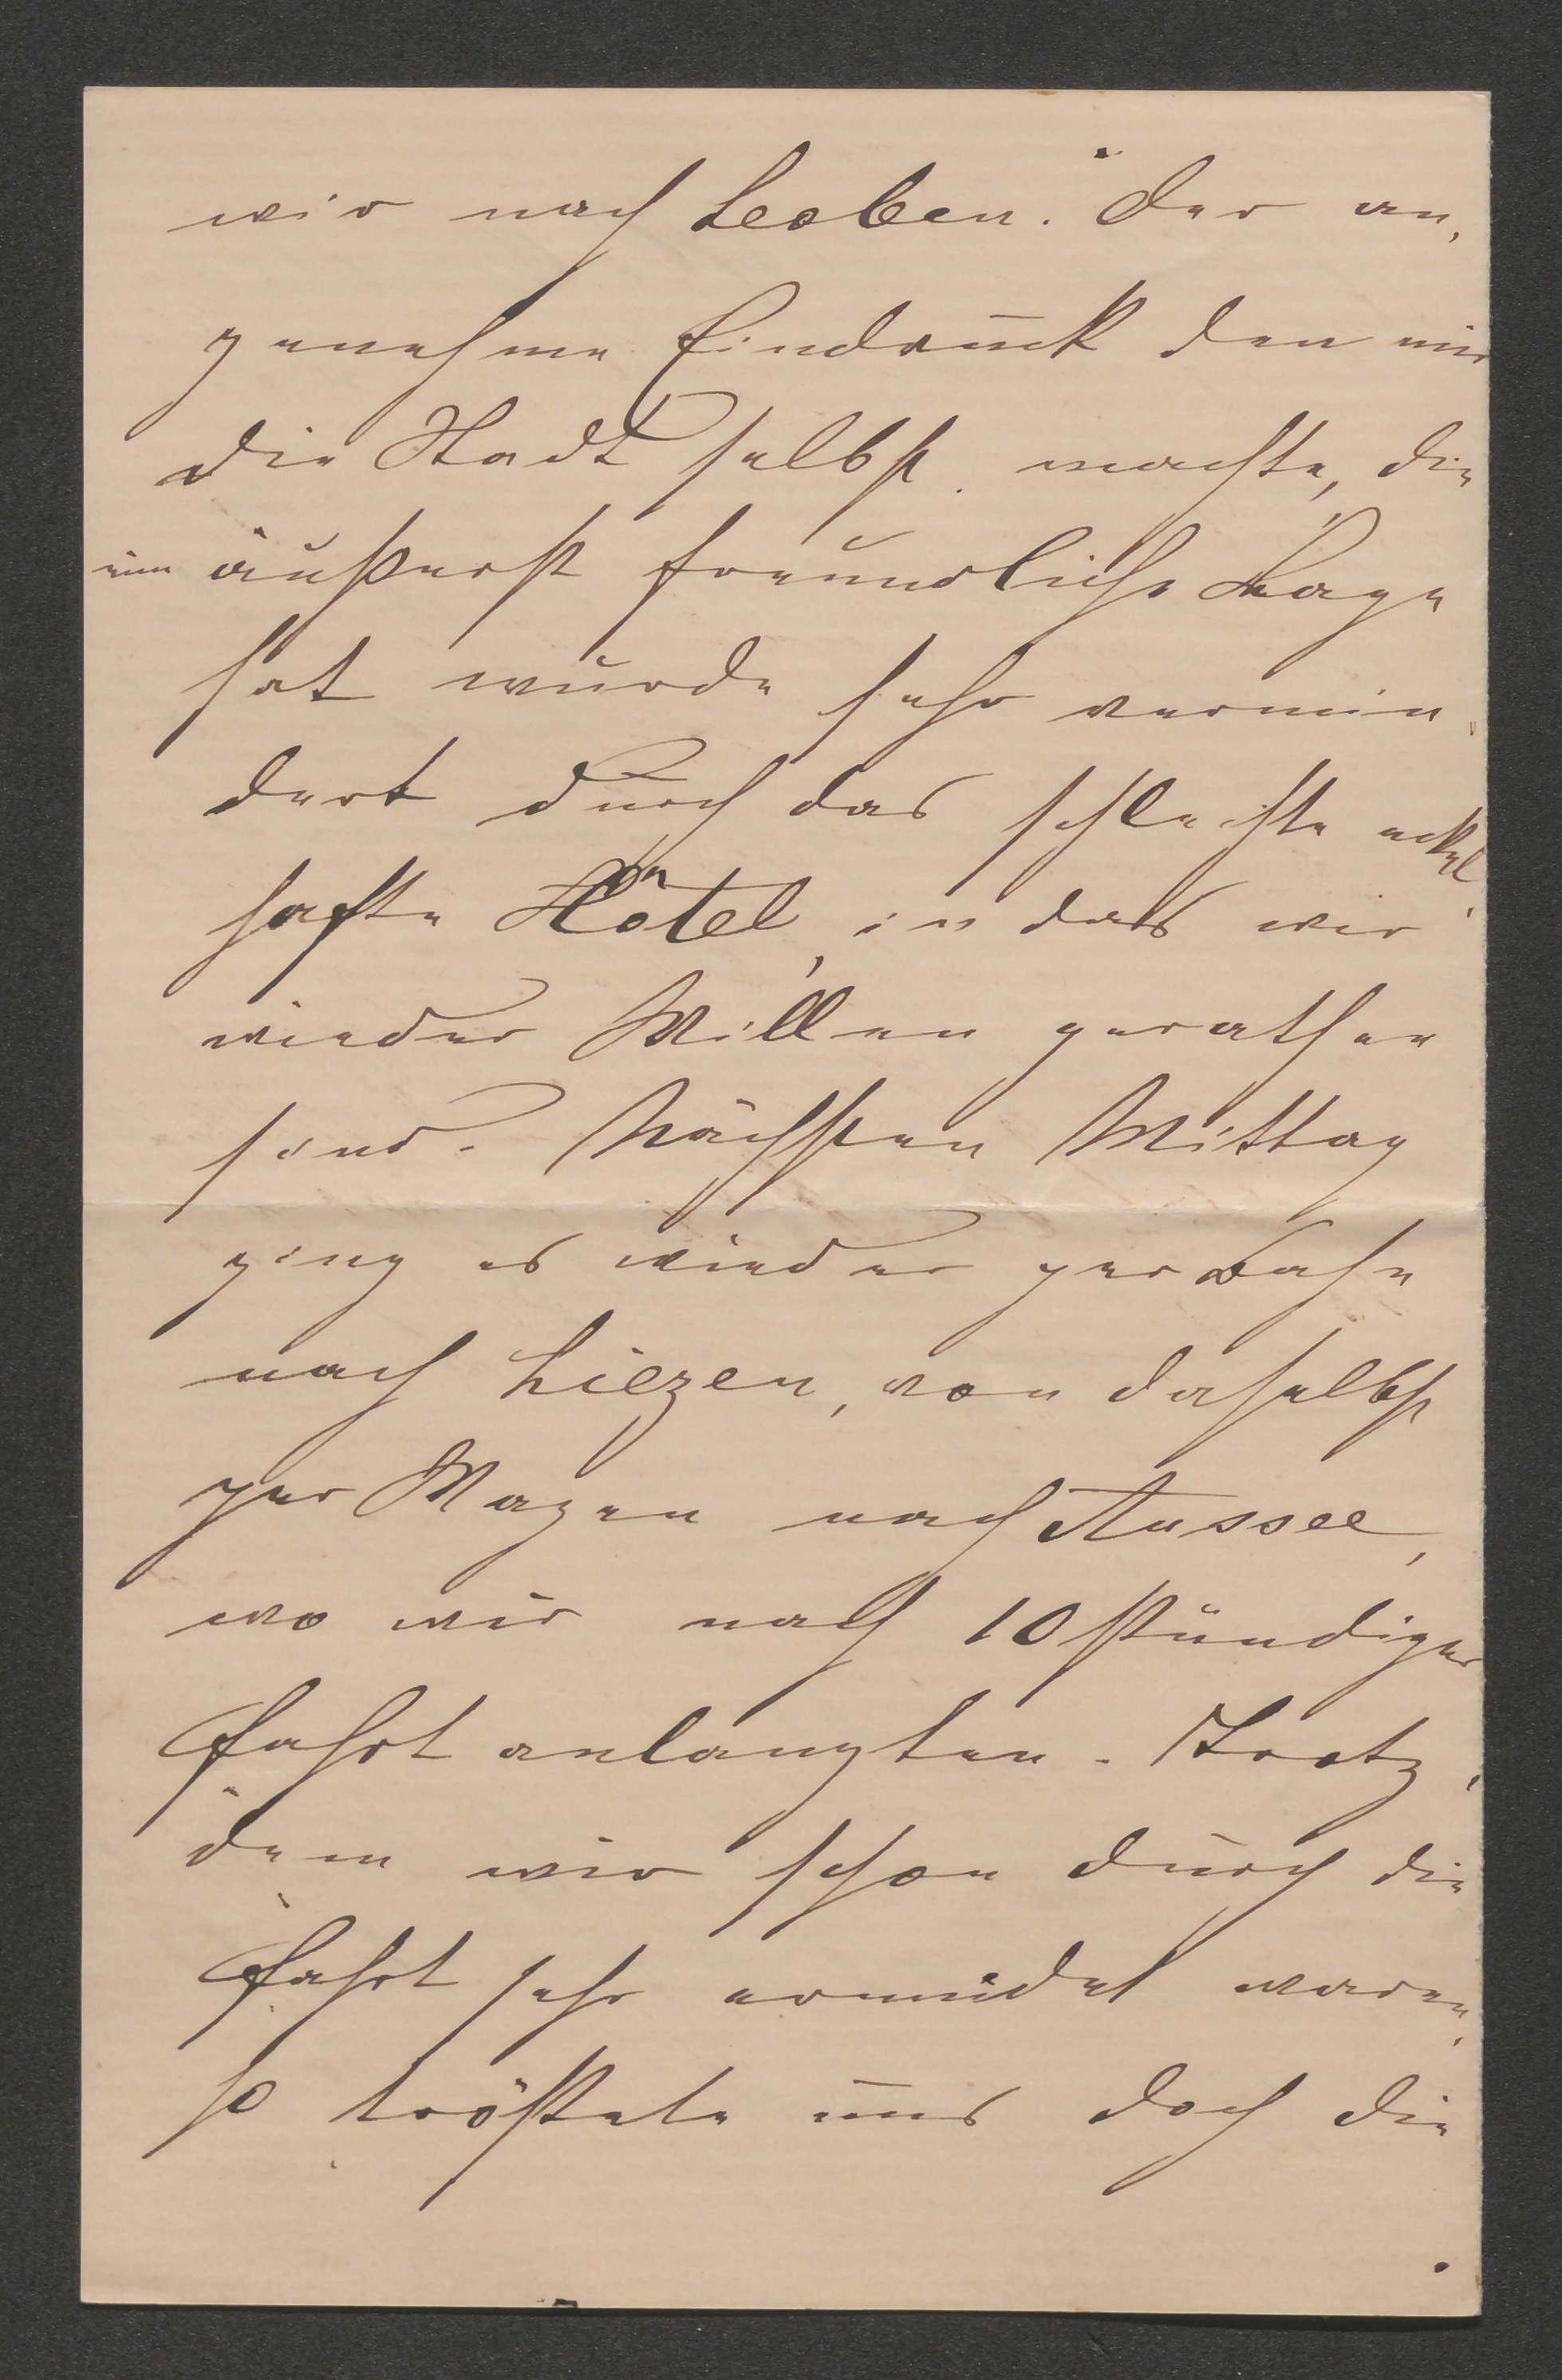 wir nach Leoben. Der an,
genehme Eindruck den mir
die Stadt selbst machte, die
eine äußerst freundliche Lage
hat wurde sehr vermin,
dert durch das schlechte eckel
hafte Hôtel, in das wir
wieder Willen gerathen
sind. Nächsten Mittag
ging es wieder per Bahn
nach Liezen, von daselbst
per Wagen nach Aussee,
wo wir nach 10 stündiger
Fahrt anlangten. Trotz,
dem wir schon durch die
Fahrt sehr ermüdet waren,
so tröstete uns doch die